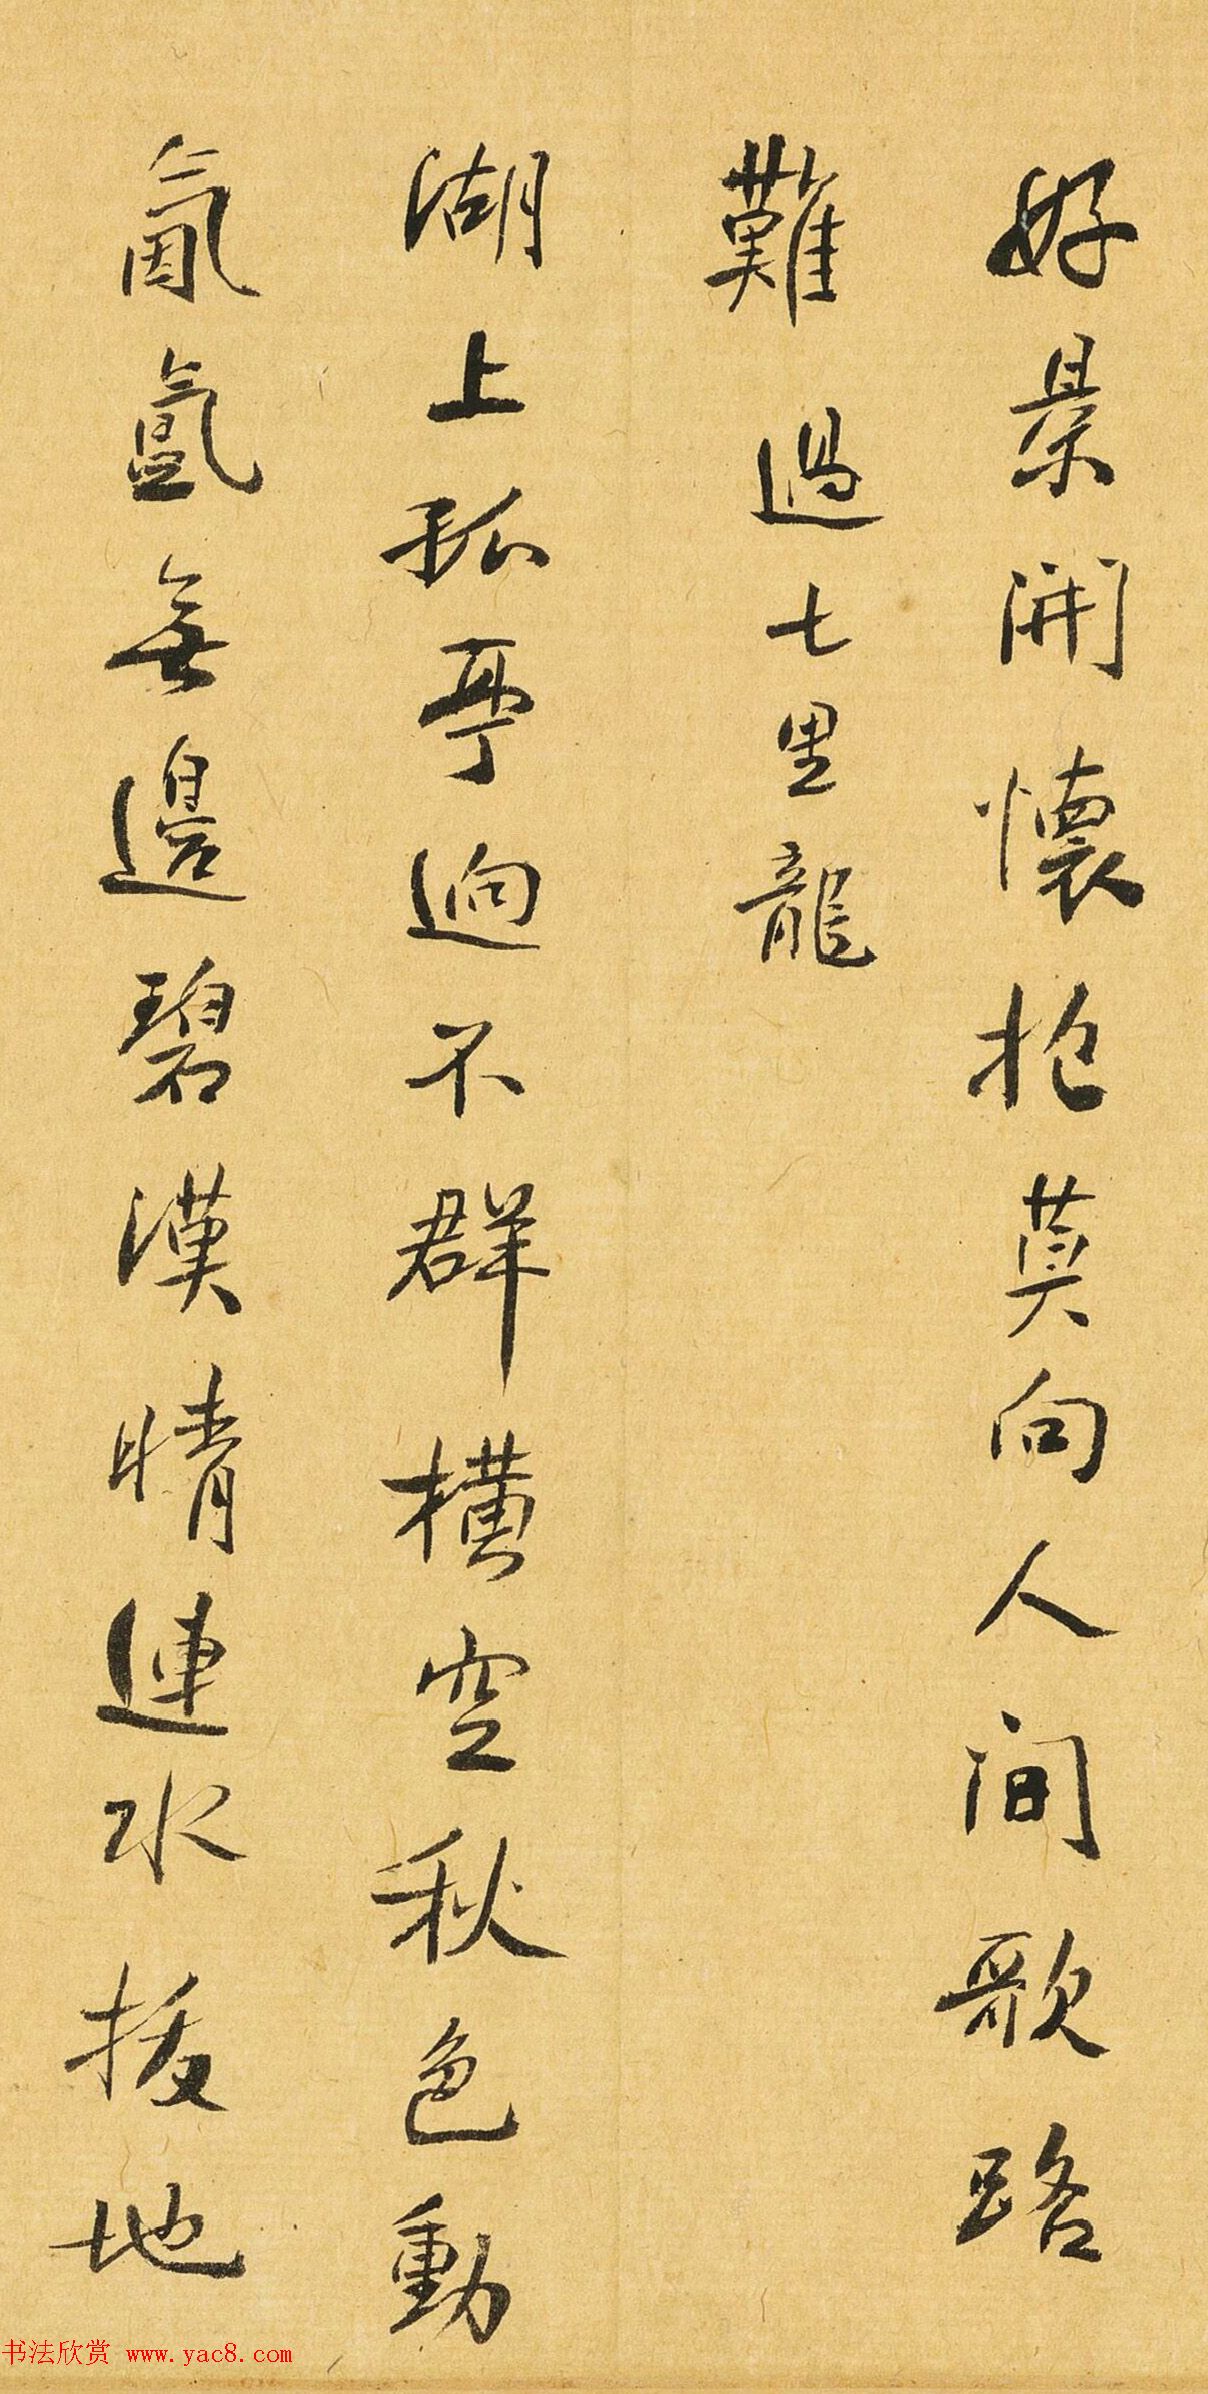 好景開懷抱莫向人間歌路
難過七里龍
湖上孤亭迥不群橫空秋色動
氤氳無邊碧漢晴連水拔地
书法欣赏 www.yac8.com